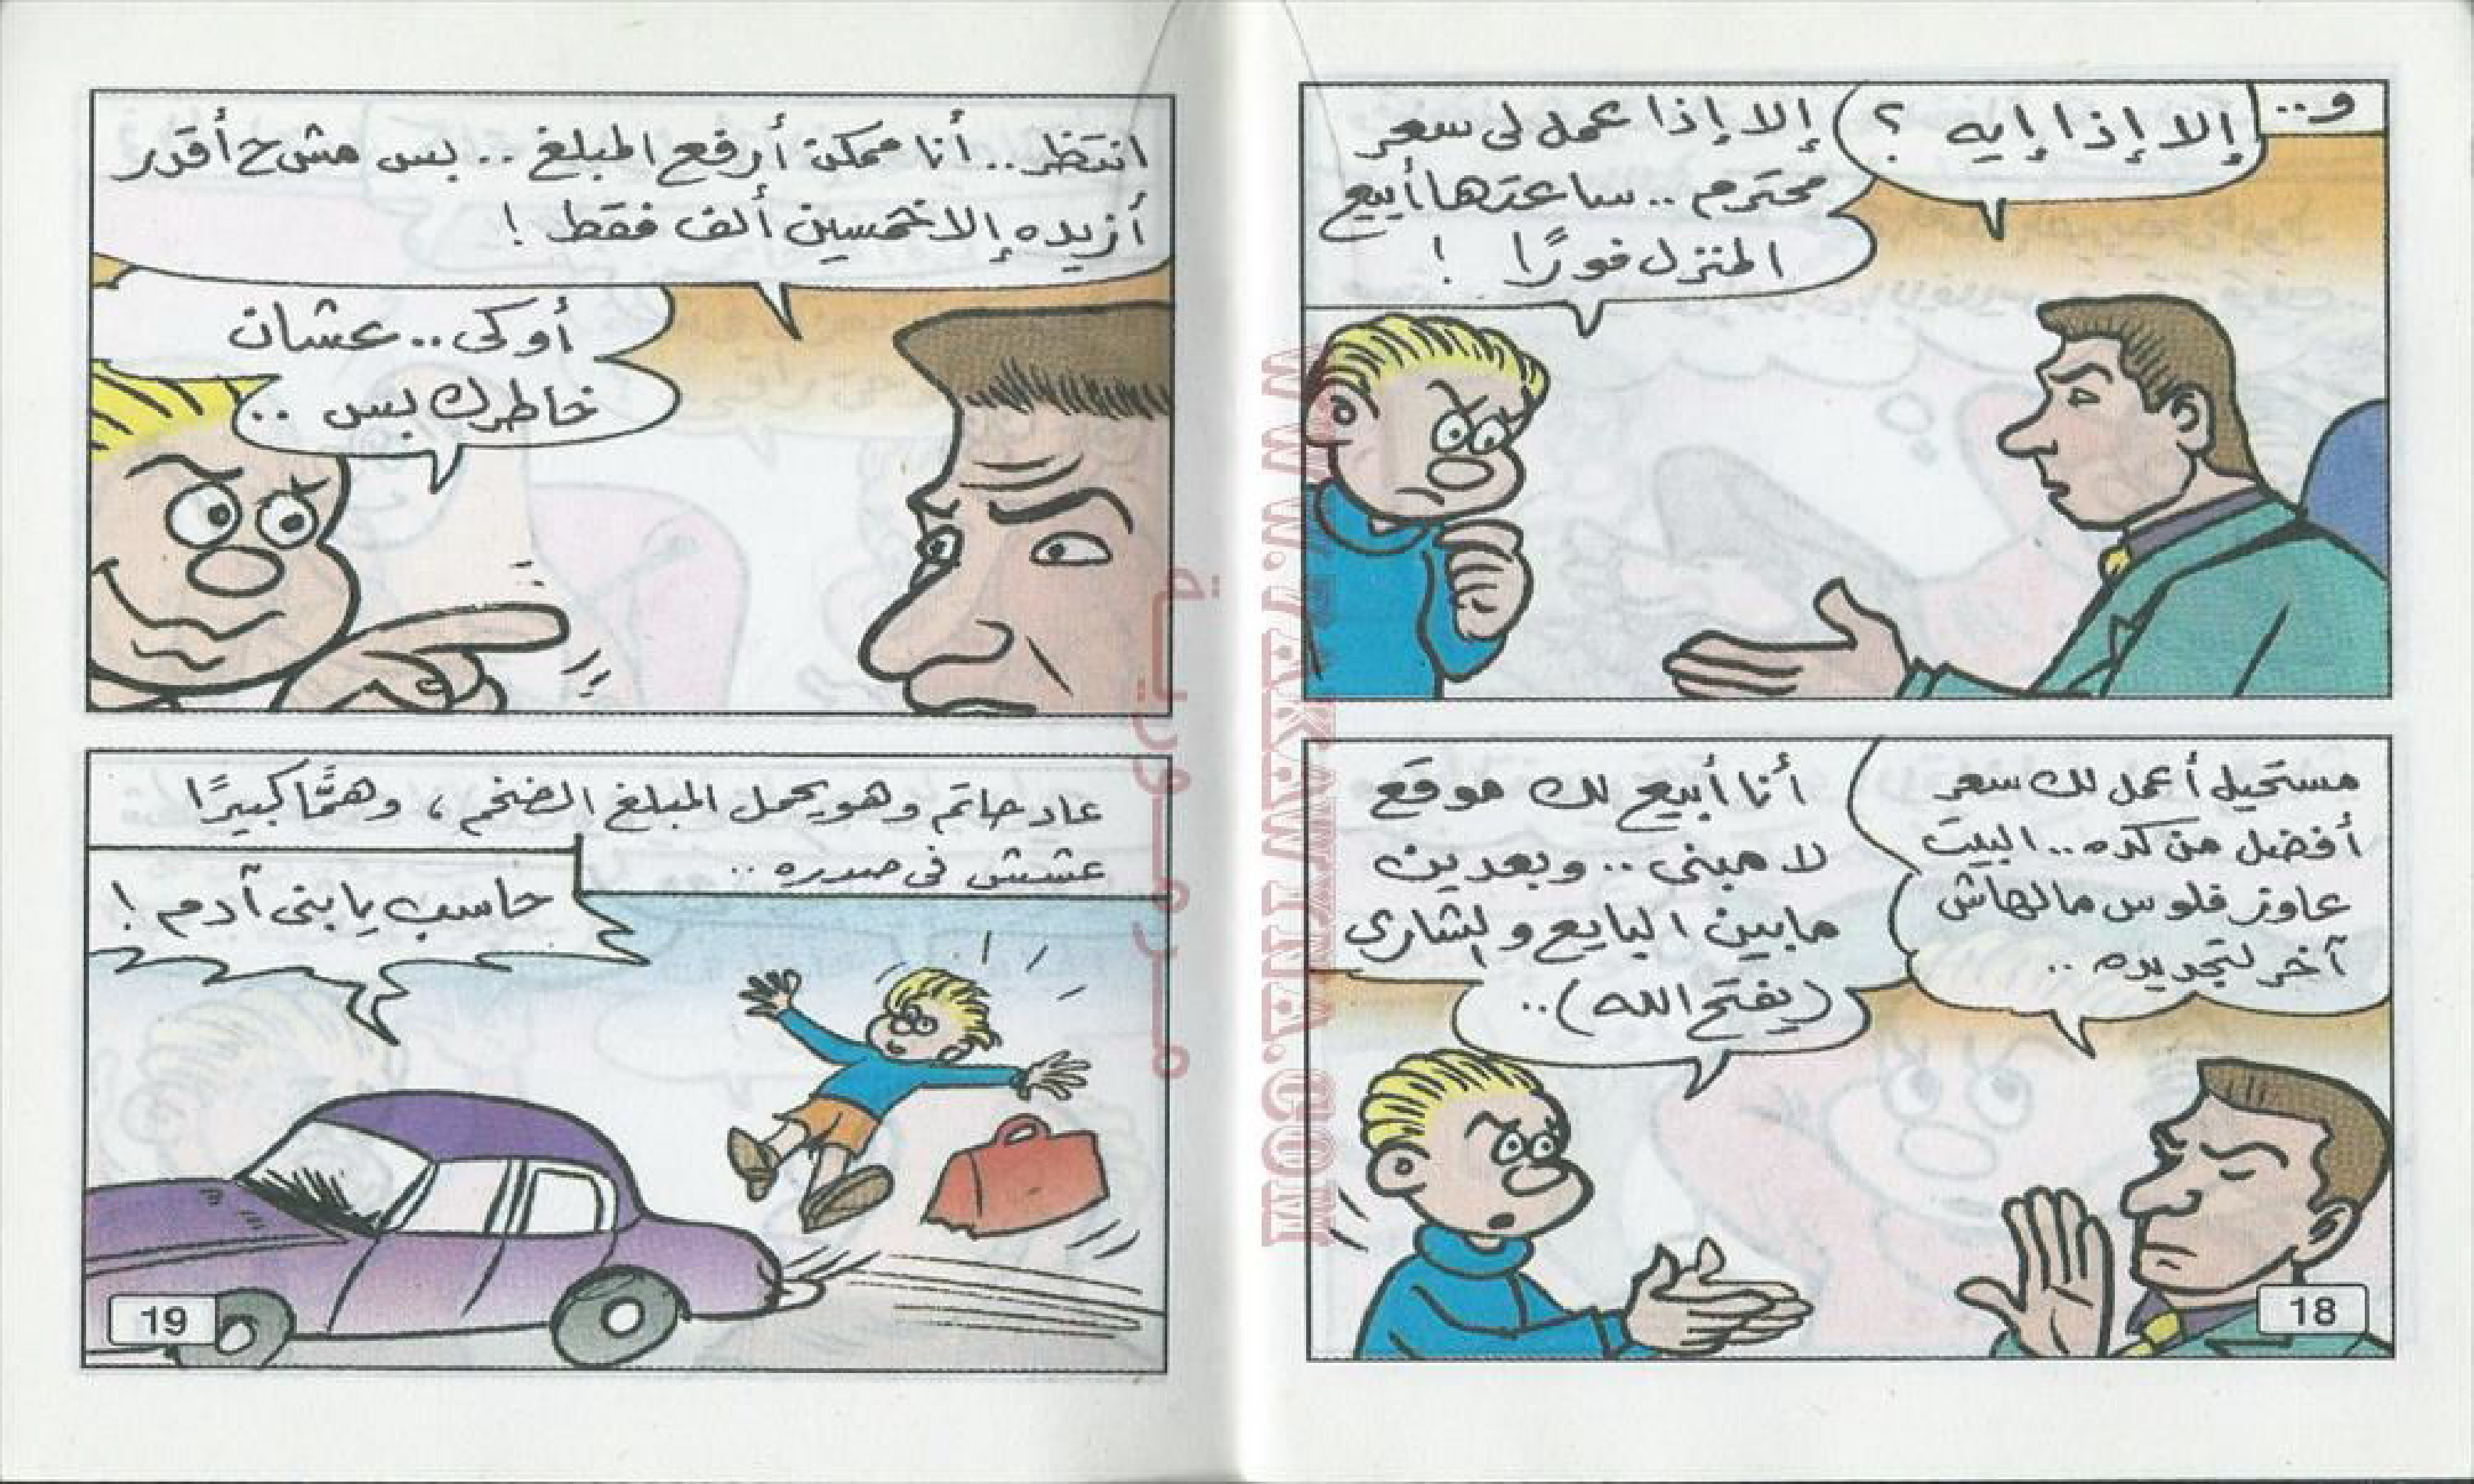 و..
إلا إذا إيه ؟
إلا إذا عمل لى سعر
محترم .. ساعتها أبيع
المنزل فورًا !
مستحيل أعمل لك سعر
أفضل من كده .. البيت
عاوز فلوس مالهاش
آخر لتجديده ..
أنا أبيع لك موقع
لا مبنى .. وبعدين
مابين البايع والشارى
(يفتح الله) ..
18
انتظر .. أنا ممكن أرفع المبلغ .. بس مش ح أقدر
أزيده إلا خمسين ألف فقط !
أوكى .. عشان
خاطرك بس ..
عاد حاتم وهو يحمل المبلغ الضخم ، وهمًّا كبيرًا
عشش فى صدره ..
حاسب يا بنى آدم !
19
WWW.ARABCOMICS.NET